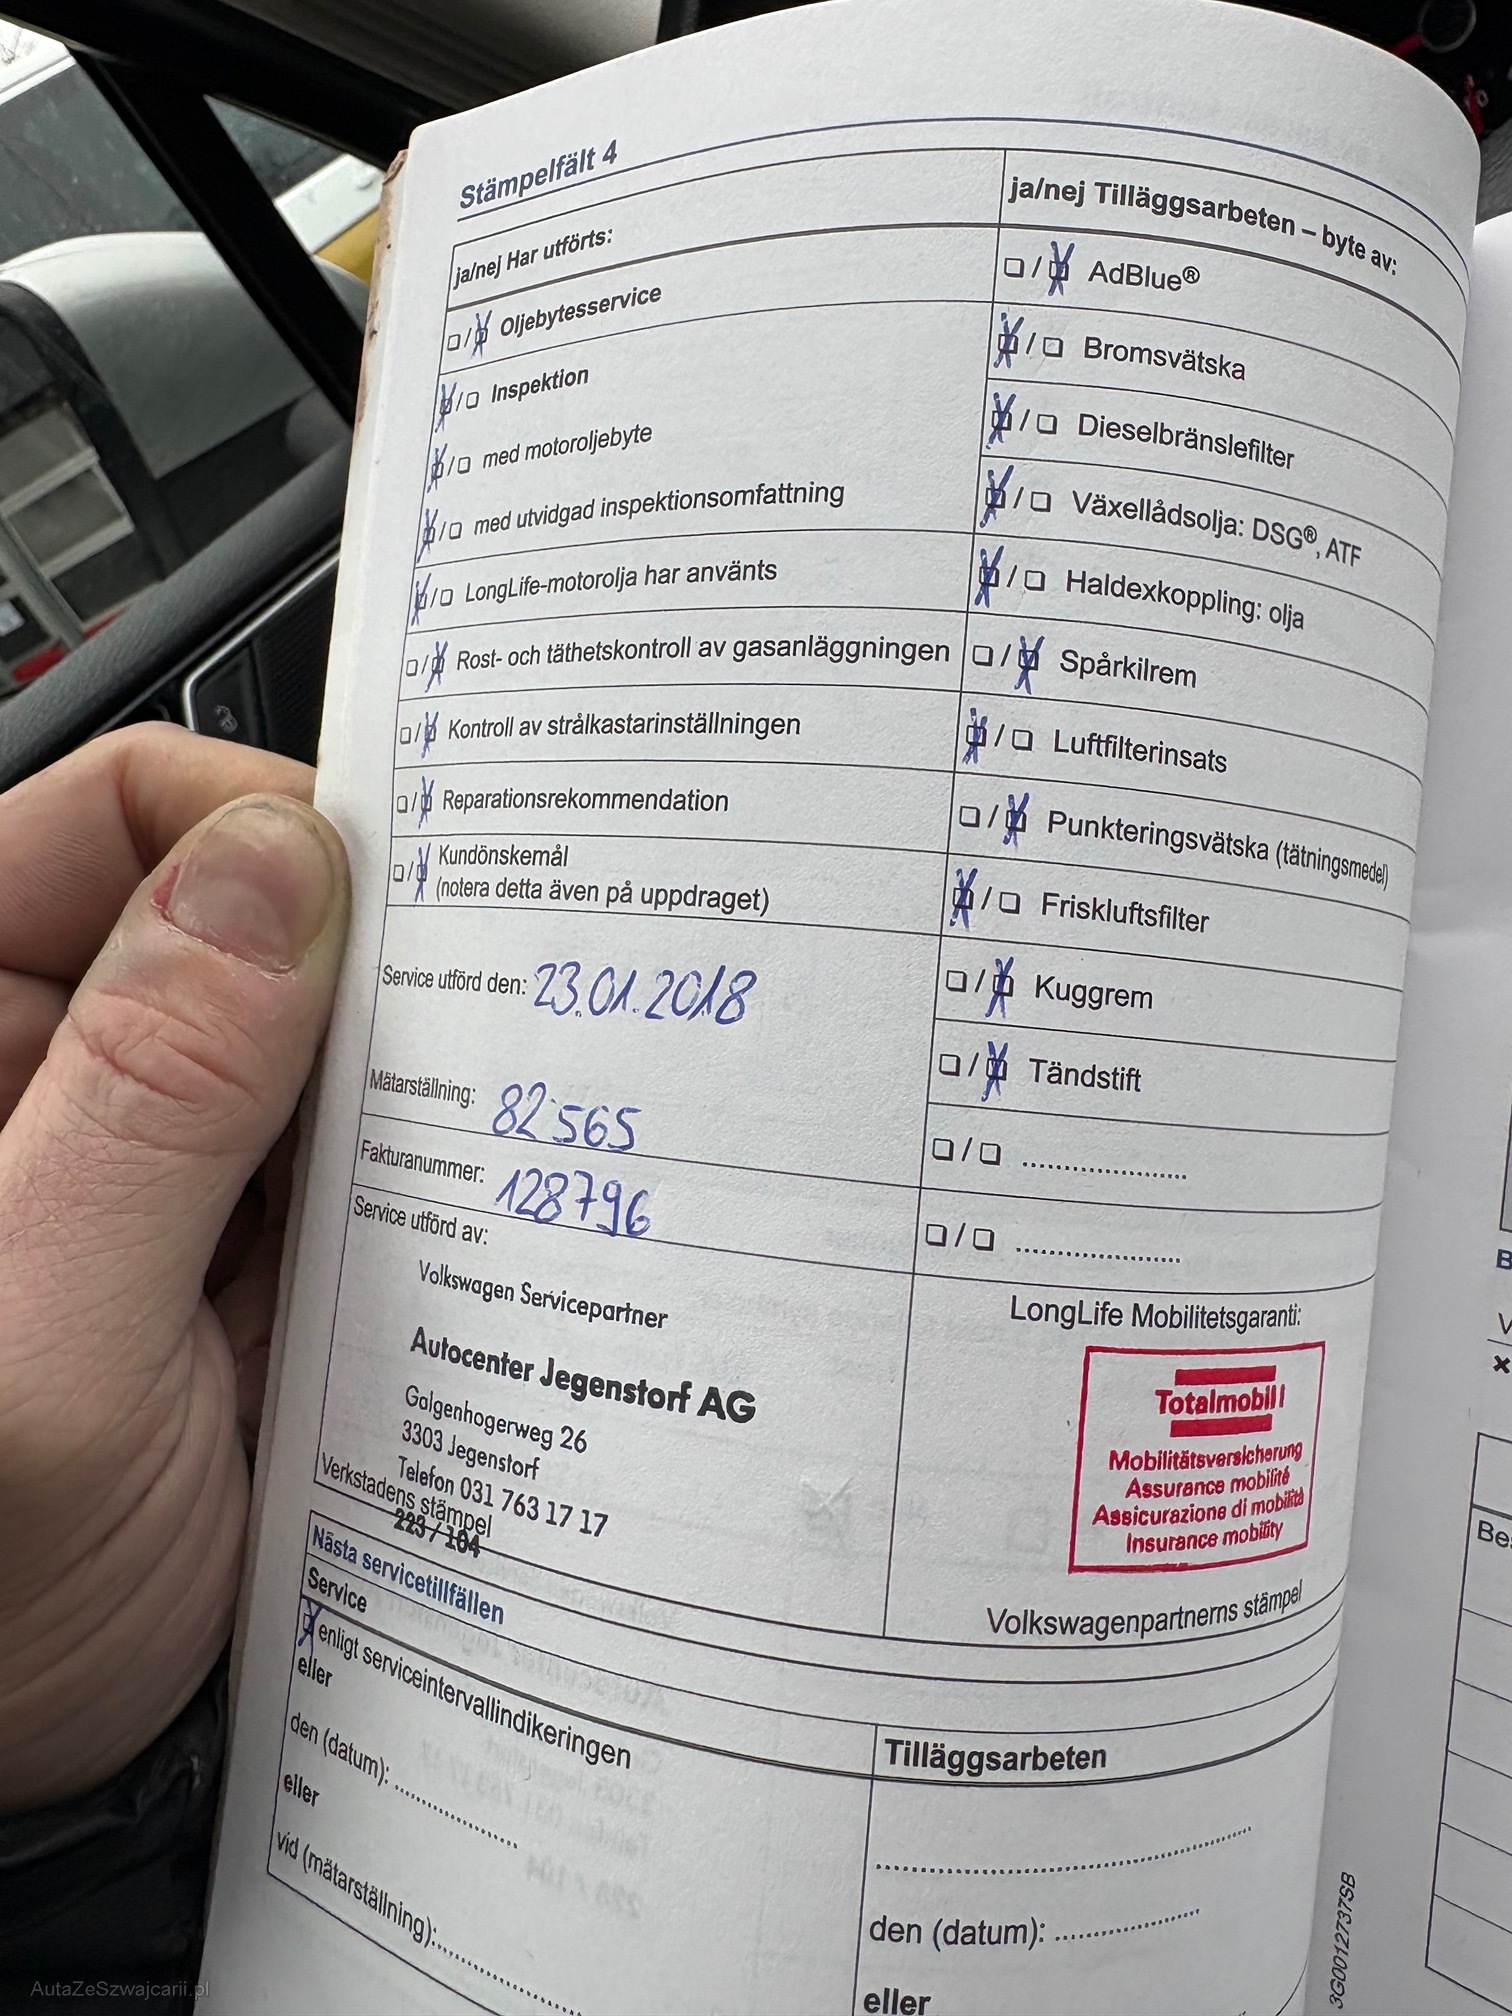 Stämpelfält 4
ja/nej Har utförts:
☐/☒ Oljebytesservice
☒/☐ Inspektion
☒/☐ med motoroljebyte
☒/☐ med utvidgad inspektionsomfattning
☒/☐ LongLife-motorolja har använts
☐/☒ Rost- och täthetskontroll av gasanläggningen
☐/☒ Kontroll av strålkastarinställningen
☐/☒ Reparationsrekommendation
☐/☒ Kundönskemål
(notera detta även på uppdraget)
Service utförd den: 23.01.2018
Mätarställning: 82'565
Fakturanummer: 128796
Service utförd av:
Volkswagen Servicepartner
Autocenter Jegenstorf AG
Galgenhogerweg 26
3303 Jegenstorf
Telefon 031 763 17 17
Verkstadens stämpel
223 / 104
ja/nej Tilläggsarbeten – byte av:
☐/☒ AdBlue®
☒/☐ Bromsvätska
☒/☐ Dieselbränslefilter
☒/☐ Växellådsolja: DSG®, ATF
☒/☐ Haldexkoppling: olja
☐/☒ Spårkilrem
☒/☐ Luftfilterinsats
☐/☒ Punkteringsvätska (tätningsmedel)
☒/☐ Friskluftsfilter
☐/☒ Kuggrem
☐/☒ Tändstift
☐/☐ ....................
☐/☐ ....................
LongLife Mobilitetsgaranti:
Totalmobil!
Mobilitätsversicherung
Assurance mobilité
Assicurazione di mobilità
Insurance mobility
Volkswagenpartnerns stämpel
Nästa servicetillfällen
Service
☒ enligt serviceintervallindikeringen
eller
den (datum): ....................
eller
vid (mätarställning):....................
Tilläggsarbeten
....................
den (datum): ....................
eller
3G0012737SB
Bes
AutaZeSzwajcarii.pl